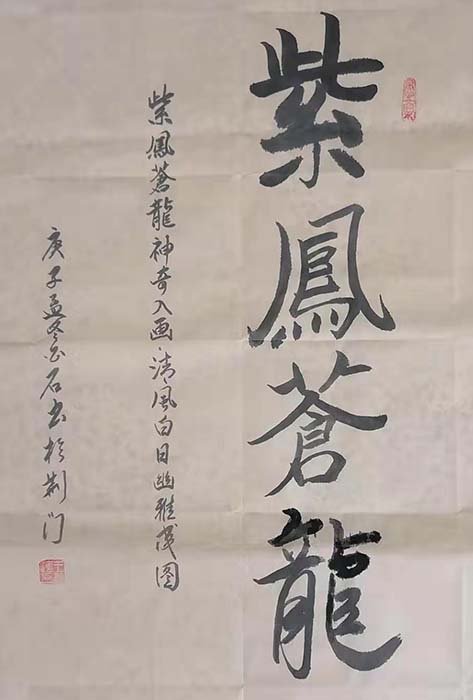 紫鳳蒼龍
紫鳳蒼龍神奇入画·清風白日幽雅成图
庚子孟冬石书於荆门